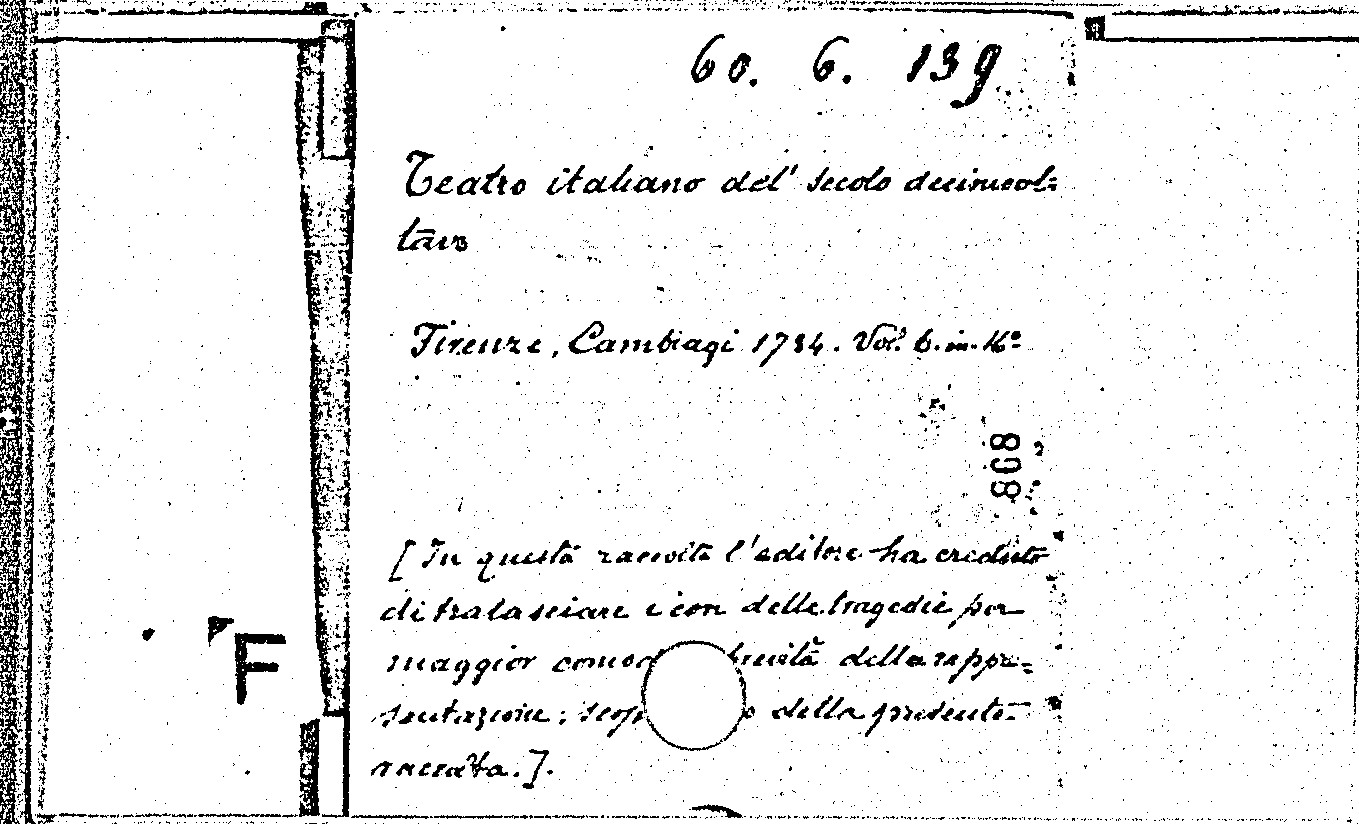 60. 6. 139
Teatro italiano del' secolo decimool=
tavo
Firenze, Cambiagi 1784. Vol. 6. in. 16º
868
[In questa raccolta l'editore ha creduto
di tralasciare i cori delle tragedie per
maggior comod brevità della rappre=
sentazione; scop o della presente
raccolta.].
F